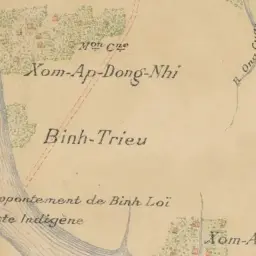 Nᵒⁿ Cᵘᵉ
Xom-Ap-Dong-Nhi
Binh-Trieu
ppontement de Binh Loï
te Indigène
Xom-A